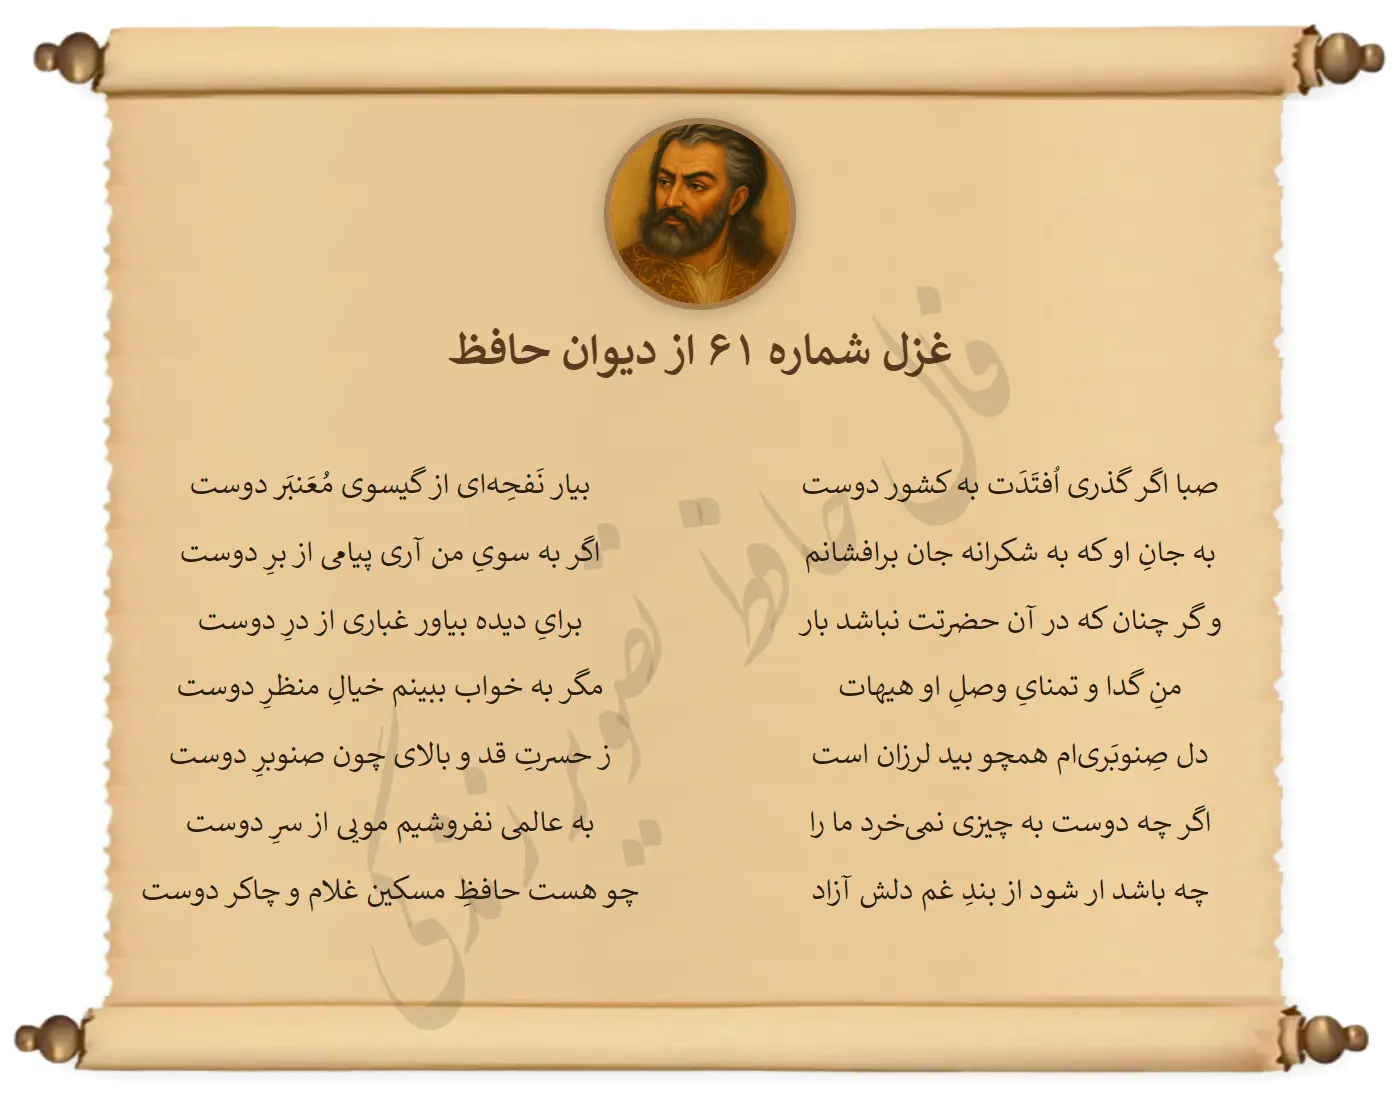 غزل شماره ۶۱ از دیوان حافظ
صبا اگر گذری اُفتَدَت به کشور دوست
بیار نَفحِه‌ای از گیسوی مُعَنبَر دوست
به جانِ او که به شکرانه جان برافشانم
اگر به سویِ من آری پیامی از برِ دوست
و گر چنان که در آن حضرتت نباشد بار
برایِ دیده بیاور غباری از درِ دوست
منِ گدا و تمنایِ وصلِ او هیهات
مگر به خواب ببینم خیالِ منظرِ دوست
دل صِنوبَری‌ام همچو بید لرزان است
ز حسرتِ قد و بالای چون صنوبرِ دوست
اگر چه دوست به چیزی نمی‌خرد ما را
به عالمی نفروشیم مویی از سرِ دوست
چه باشد ار شود از بندِ غم دلش آزاد
چو هست حافظِ مسکین غلام و چاکر دوست
فال حافظ تصویر زندگی